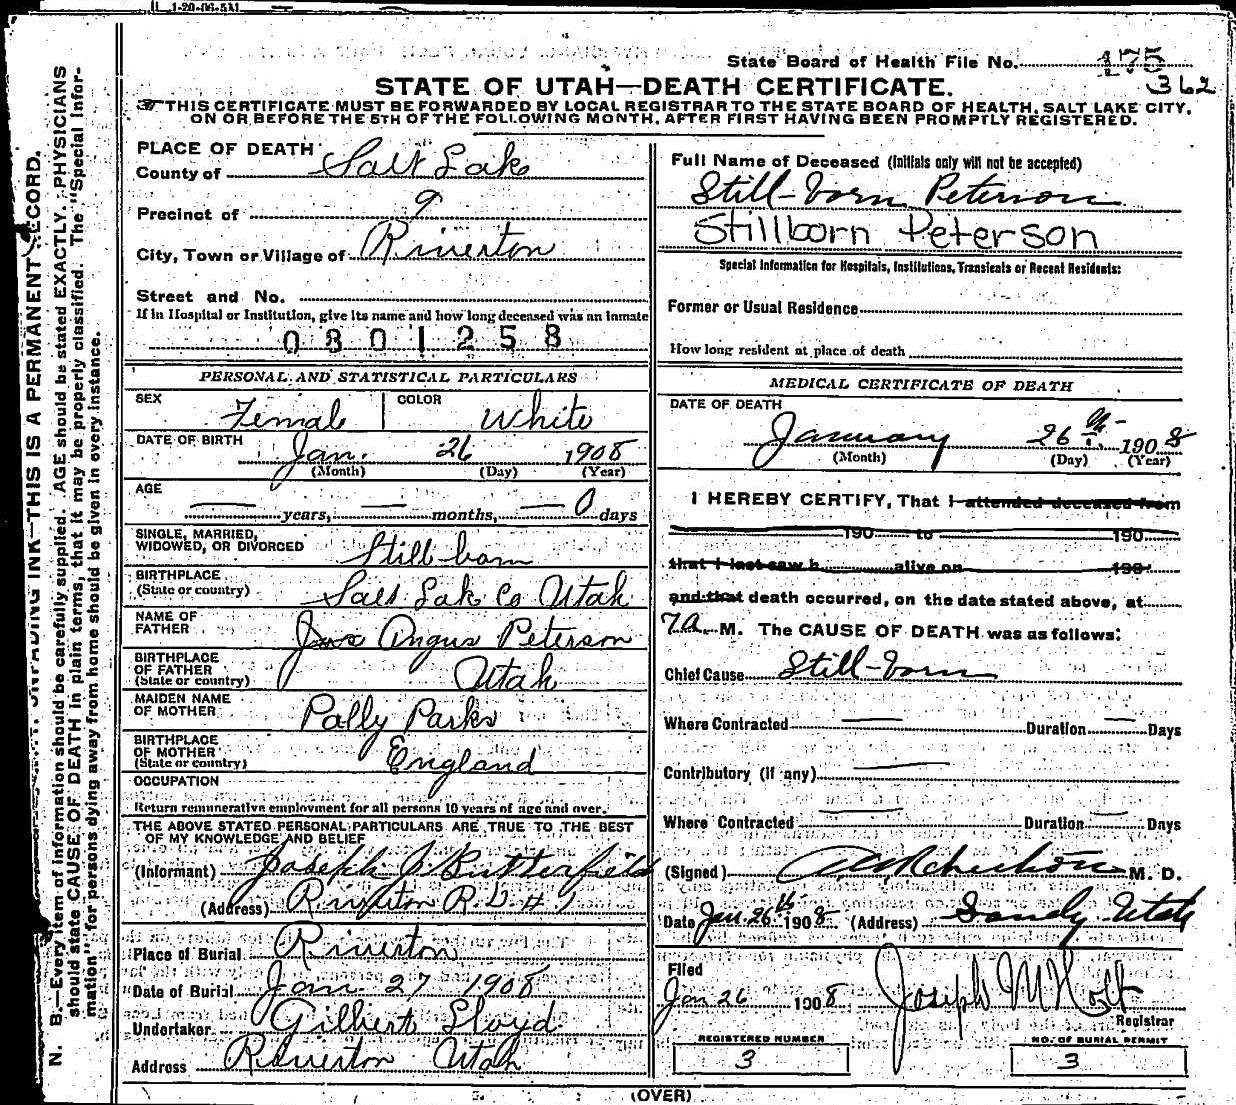 1-20-06-5M
State Board of Health File No. 175
362
STATE OF UTAH—DEATH CERTIFICATE.
THIS CERTIFICATE MUST BE FORWARDED BY LOCAL REGISTRAR TO THE STATE BOARD OF HEALTH, SALT LAKE CITY,
ON OR BEFORE THE 5TH OF THE FOLLOWING MONTH, AFTER FIRST HAVING BEEN PROMPTLY REGISTERED.
N. B.—Every item of information should be carefully supplied. AGE should be stated EXACTLY. PHYSICIANS
should state CAUSE OF DEATH in plain terms, that it may be properly classified. The "Special Infor-
mation" for persons dying away from home should be given in every instance.
INK—THIS IS A PERMANENT RECORD.
PLACE OF DEATH
County of Salt Lake
Precinct of 9
City, Town or Village of Riverton
Street and No.
If in Hospital or Institution, give its name and how long deceased was an inmate
0801258
PERSONAL AND STATISTICAL PARTICULARS
SEX Female COLOR White
DATE OF BIRTH Jan. 26 1908
(Month) (Day) (Year)
AGE
— years, — months, — 0 days
SINGLE, MARRIED,
WIDOWED, OR DIVORCED Still born
BIRTHPLACE
(State or country) Salt Lake Co Utah
NAME OF
FATHER Angus Peterson
BIRTHPLACE
OF FATHER
(State or country) Utah
MAIDEN NAME
OF MOTHER Pally Parks
BIRTHPLACE
OF MOTHER
(State or country) England
OCCUPATION
Return remunerative employment for all persons 10 years of age and over.
THE ABOVE STATED PERSONAL PARTICULARS ARE TRUE TO THE BEST
OF MY KNOWLEDGE AND BELIEF
(Informant) Joseph J Butterfield
(Address) Riverton R.D. #1
Place of Burial Riverton
Date of Burial Jan 27 1908
Undertaker Gilbert Lloyd
Address Riverton Utah
Full Name of Deceased (Initials only will not be accepted)
Still-born Peterson
Stillborn Peterson
Special Information for Hospitals, Institutions, Transients or Recent Residents:
Former or Usual Residence
How long resident at place of death
MEDICAL CERTIFICATE OF DEATH
DATE OF DEATH
January 26th 1908
(Month) (Day) (Year)
I HEREBY CERTIFY, That I attended deceased from
190 to 190
that I last saw h alive on 190
and that death occurred, on the date stated above, at
7 a. M. The CAUSE OF DEATH was as follows:
Chief Cause Still-born
Where Contracted — Duration — Days
Contributory (if any) —
Where Contracted — Duration — Days
(Signed) M. D.
Date Jan. 26th 1908 (Address) Sandy Utah
Filed
Jan 26 1908 Joseph M Holt
Registrar
REGISTERED NUMBER
3
NO. OF BURIAL PERMIT
3
(OVER)